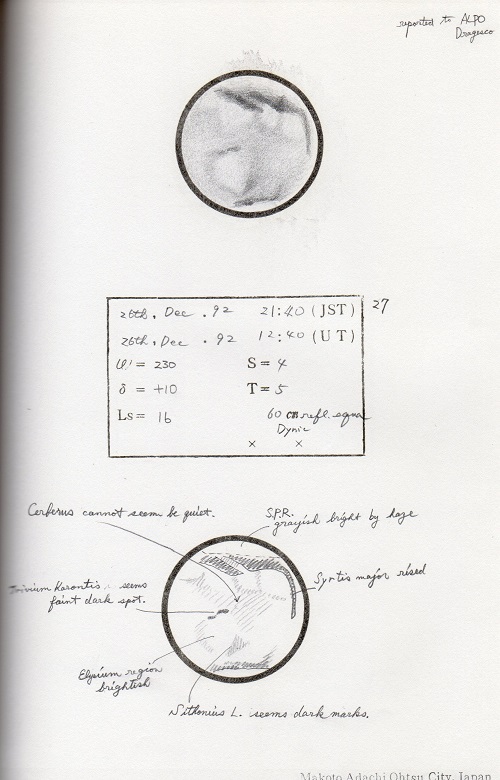 reported to ALPO
Dragesco
26th, Dec . 92 21:40 (JST) 27
26th, Dec . 92 12:40 (UT)
ω = 230 S = 4
δ = +10 T = 5
Ls = 16 60 cm refl. equa
Dynic
× ×
Cerberus cannot seem be quiet.
S.P.R.
grayish bright by haze
Trivium Karontis seems
faint dark spot.
Syrtis major rised
Elysium region
brightish
Nithonius L. seems dark marks.
Makoto Adachi Ohtsu City, Japan